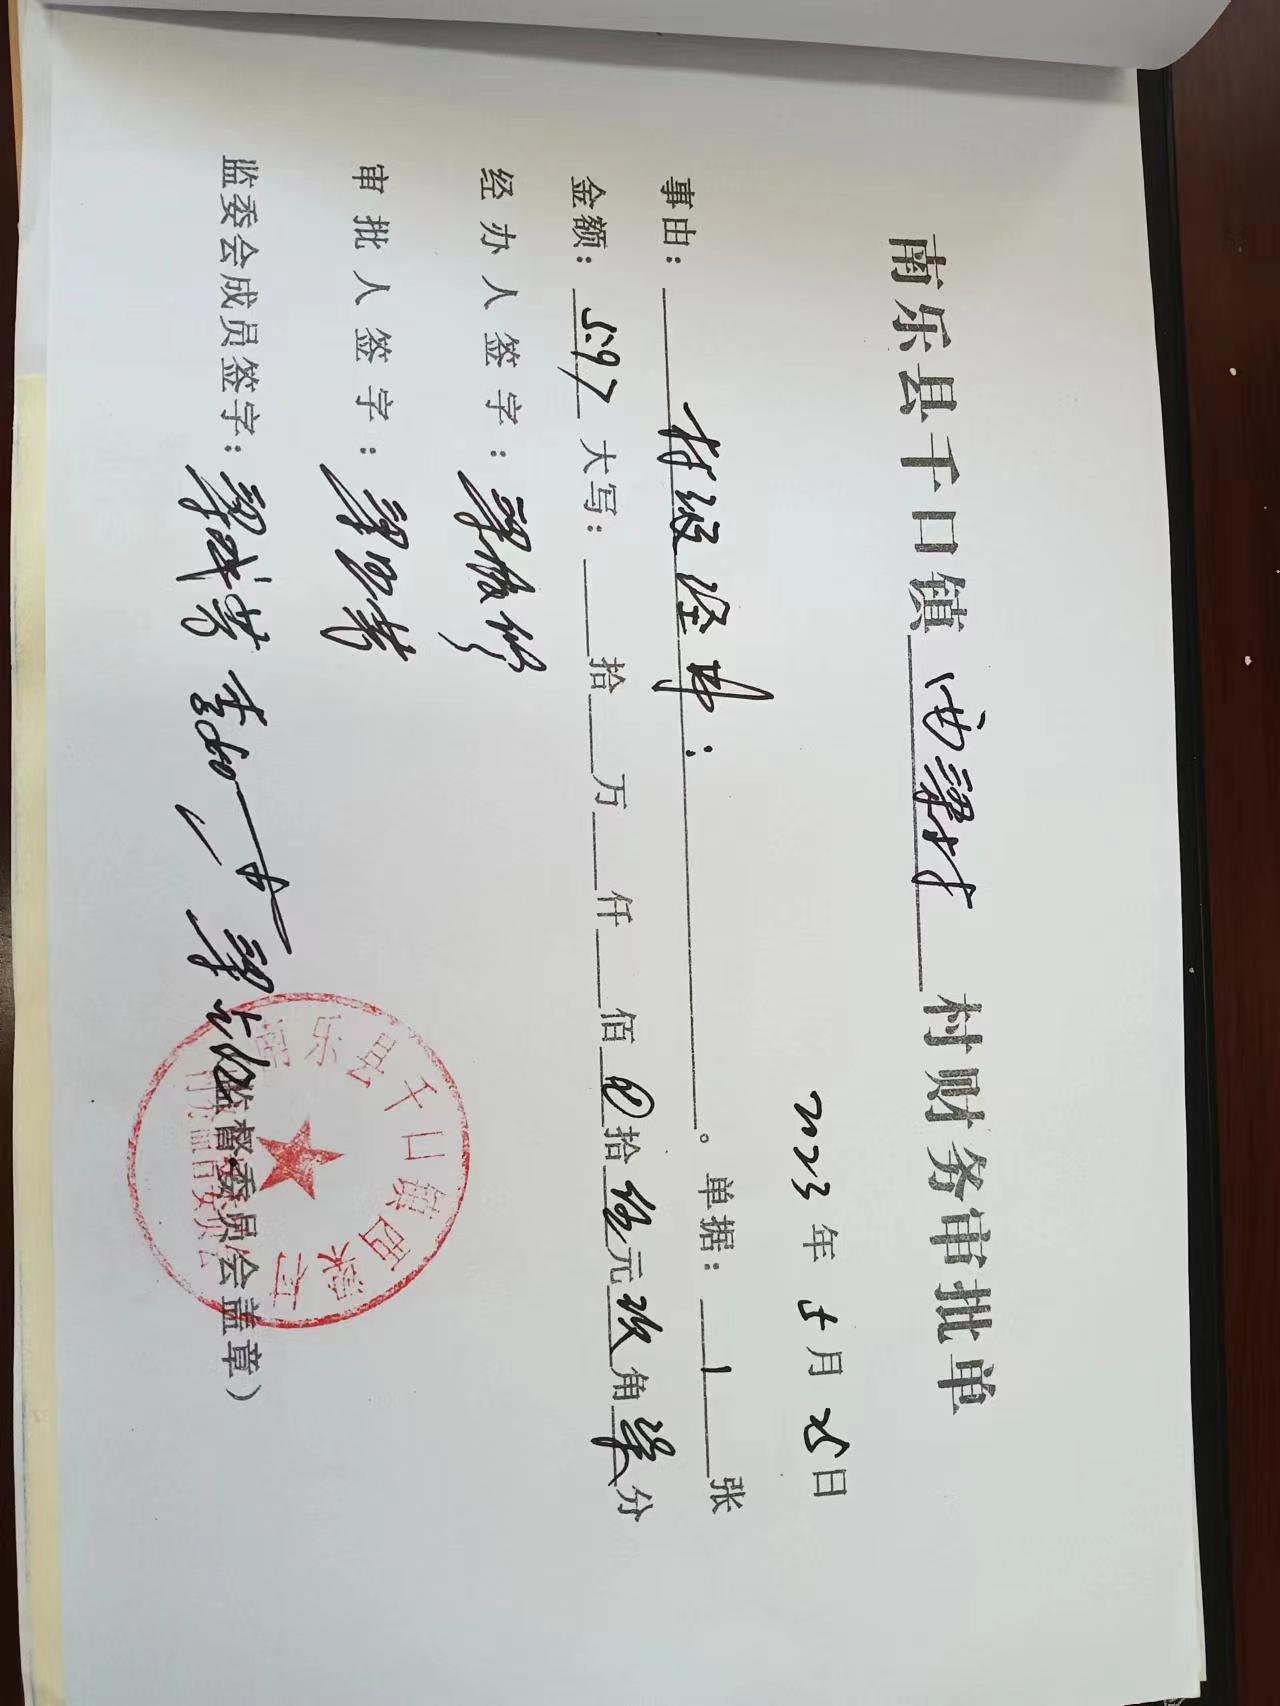 南乐县千口镇 西梁村 村财务审批单
2023年5月25日
事由： 村级经费： 。单据： 1 张
金额： 5.97 大写： 拾 万 仟 佰 拾 伍元玖角柒分
经办人签字：梁
审批人签字：梁
监委会成员签字：梁 监督委员会盖章）
南乐县千口镇西梁村
村务监督委员会